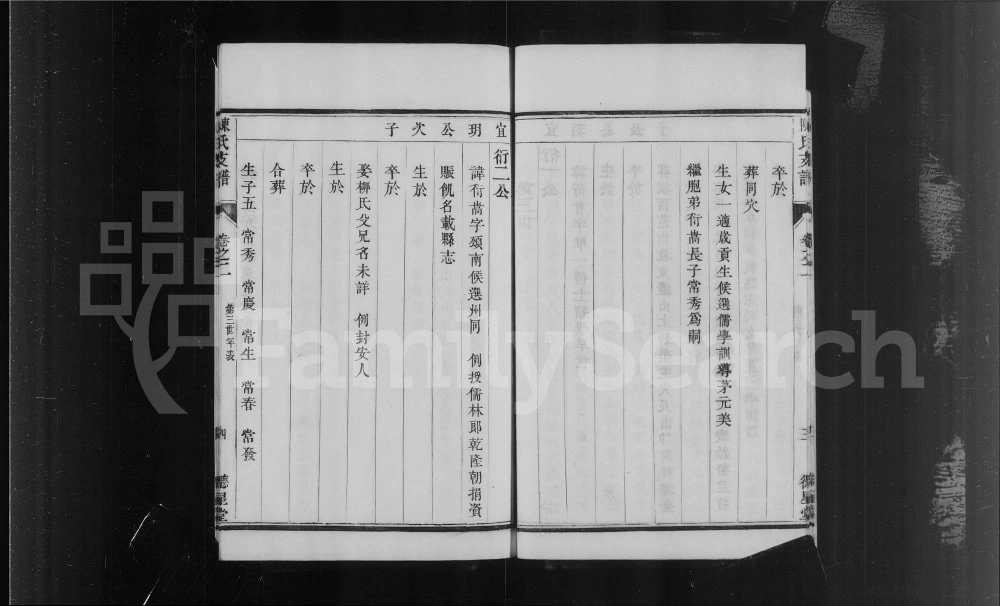 卒於
葬同穴
生女一適歲貢生候選儒學訓導茅元美
繼胞弟衍嵩長子常秀爲嗣
宜玥公次子
衍二公
諱衍嵩字頌南候選州同 例授儒林郎乾隆朝捐資
賑飢名載縣志
生於
卒於
娶柳氏父兄名未詳 例封安人
生於
卒於
合葬
生子五 常秀 常慶 常生 常春 常發
陳氏支譜
卷之二
第三世年表
四
德星堂
FamilySearch